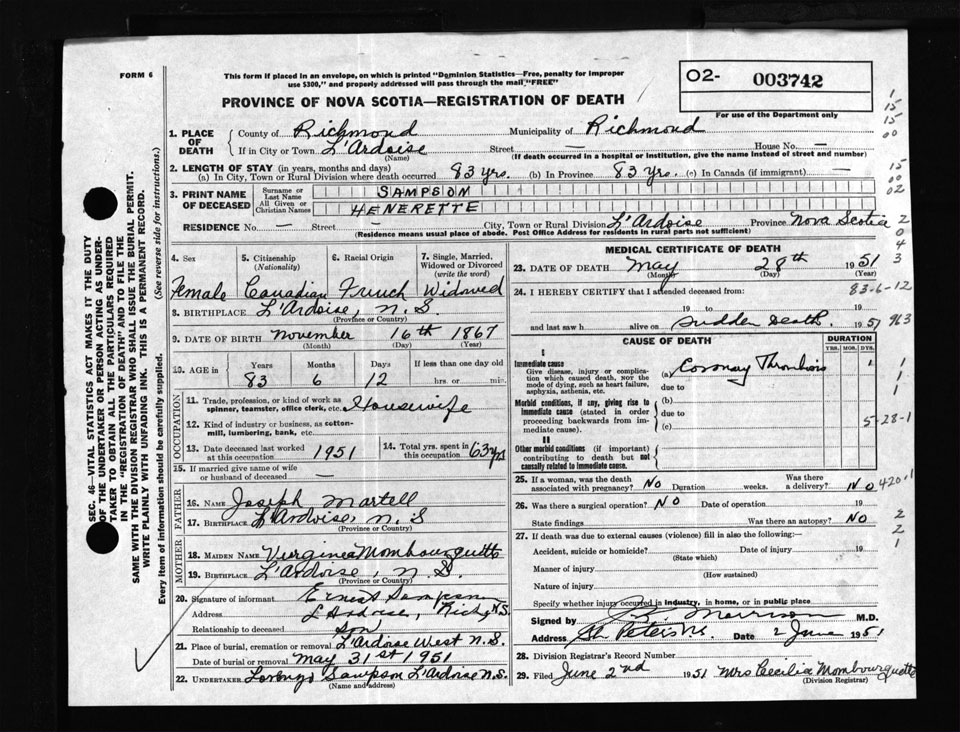 FORM 6
This form if placed in an envelope, on which is printed "Dominion Statistics—Free, penalty for improper
use $300," and properly addressed will pass through the mail "FREE"
O2- 003742
For use of the Department only
PROVINCE OF NOVA SCOTIA—REGISTRATION OF DEATH
1. PLACE OF DEATH County of Richmond Municipality of Richmond
If in City or Town L'Ardoise Street — House No. —
(Name) (If death occurred in a hospital or institution, give the name instead of street and number)
2. LENGTH OF STAY (in years, months and days)
(a) In City, Town or Rural Division where death occurred 83 yrs. (b) In Province 83 yrs. (c) In Canada (if immigrant) —
3. PRINT NAME OF DECEASED
Surname or Last Name SAMPSON
All Given or Christian Names HENERETTE
RESIDENCE No. — Street — City, Town or Rural Division L'Ardoise Province Nova Scotia
(Residence means usual place of abode. Post Office Address for residents in rural parts not sufficient)
4. Sex 5. Citizenship (Nationality) 6. Racial Origin 7. Single, Married, Widowed or Divorced (write the word)
Female Canadian French Widowed
8. BIRTHPLACE L'Ardoise, N.S.
(Province or Country)
9. DATE OF BIRTH November 16th 1867
(Month) (Day) (Year)
10. AGE in Years Months Days If less than one day old
83 6 12 hrs. or min.
OCCUPATION
11. Trade, profession, or kind of work as spinner, teamster, office clerk, etc. Housewife
12. Kind of industry or business, as cotton-mill, lumbering, bank, etc.
13. Date deceased last worked at this occupation 1951 14. Total yrs. spent in this occupation 63 yrs
15. If married give name of wife or husband of deceased —
FATHER
16. NAME Joseph Martell
17. BIRTHPLACE L'Ardoise, N.S
(Province or Country)
MOTHER
18. MAIDEN NAME Virginea Mombourquette
19. BIRTHPLACE L'Ardoise, N.S.
(Province or Country)
20. Signature of informant Ernest Sampson
Address L'Ardoise, Rich, N.S.
Relationship to deceased Son
21. Place of burial, cremation or removal L'Ardoise West N.S.
Date of burial or removal May 31st 1951
22. UNDERTAKER Lorenzo Sampson L'Ardoise N.S.
(Name and address)
MEDICAL CERTIFICATE OF DEATH
23. DATE OF DEATH May 28th 1951
(Month) (Day) (Year)
24. I HEREBY CERTIFY that I attended deceased from:
83-6-12
19 to 19
and last saw h alive on Sudden death. 1951
963
CAUSE OF DEATH
DURATION
YRS. MOS. DYS.
I
Immediate cause
Give disease, injury or complication which caused death, NOT the mode of dying, such as heart failure, asphyxia, asthenia, etc.
(a) Coronay Thrombosis 1
due to
Morbid conditions, if any, giving rise to immediate cause (stated in order proceeding backwards from immediate cause).
(b)
due to
(c)
5-28-1
II
Other morbid conditions (if important) contributing to death but not causally related to immediate cause.
25. If a woman, was the death associated with pregnancy? No Duration weeks. Was there a delivery? No 420.1
26. Was there a surgical operation? No Date of operation 19
State findings Was there an autopsy? No
27. If death was due to external causes (violence) fill in also the following:—
Accident, suicide or homicide? Date of injury 19
(State which)
Manner of injury
(How sustained)
Nature of injury
Specify whether injury occurred in industry, in home, or in public place
Signed by Morrison M.D.
Address St Peters N.S. Date 2 June 1951
28. Division Registrar's Record Number
29. Filed June 2nd 1951 Mrs Cecilia Mombourquette
(Division Registrar)
SEC. 46—VITAL STATISTICS ACT MAKES IT THE DUTY
OF THE UNDERTAKER OR PERSON ACTING AS UNDER-
TAKER TO OBTAIN ALL THE PARTICULARS REQUIRED
IN THE "REGISTRATION OF DEATH" AND TO FILE THE
SAME WITH THE DIVISION REGISTRAR WHO SHALL ISSUE THE BURIAL PERMIT.
WRITE PLAINLY WITH UNFADING INK. THIS IS A PERMANENT RECORD.
Every item of information should be carefully supplied. (See reverse side for instructions.)
1
15
15
00
15
00
02
2
0
4
3
1
1
1
2
2
1